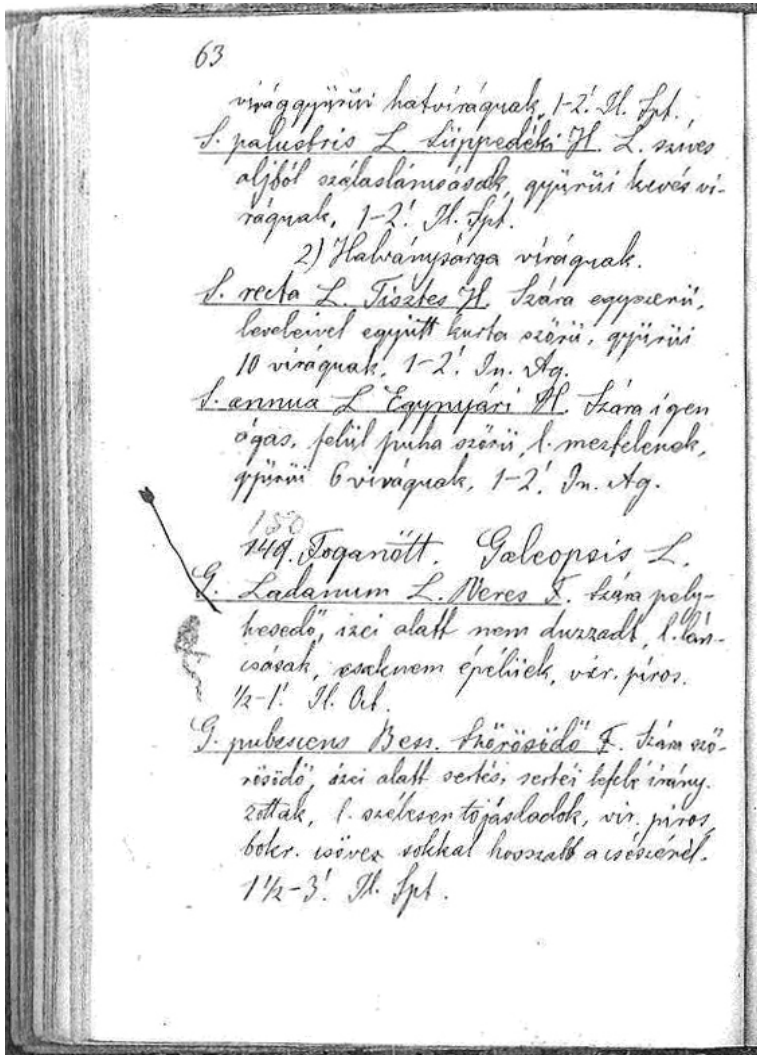 63
virággyürüi hatvirágnak, 1-2'. Jl. Spt.
S. palustris L. Süppedéki H. L. szives
aljból szálaslánsásak, gyürüi kevés vi-
rágnak, 1-2'. Jl. Spt.
2) Halványsárga virágnak.
S. recta L. Tisztes H. Szára egyszerü,
leveleivel együtt kurta szőrü, gyürüi
10 virágnak, 1-2'. Jn. Ag.
S. annua L. Egynyári H. Szára igen
ágas, felül puha szőrü, l. meztelenek,
gyürüi 6 virágnak, 1-2'. Jn. Ag.
150
149. Foganőtt. Galeopsis L.
G. Ladanum L. Veres F. Szára poly-
hesedő, izei alatt nem duzzadt, l. lán-
csásak, csaknem épélüek, vir. piros.
1/2-1'. Jl. Oct.
G. pubescens Bess. Szőrösödő F. Szára sző-
rösödő, izei alatt sertés, sertéi lefelé irány-
zottak, l. szélesen tojásdadok, vir. piros,
bokr. csöves sokkal hosszabb a csészénél.
1 1/2-3'. Jl. Spt.